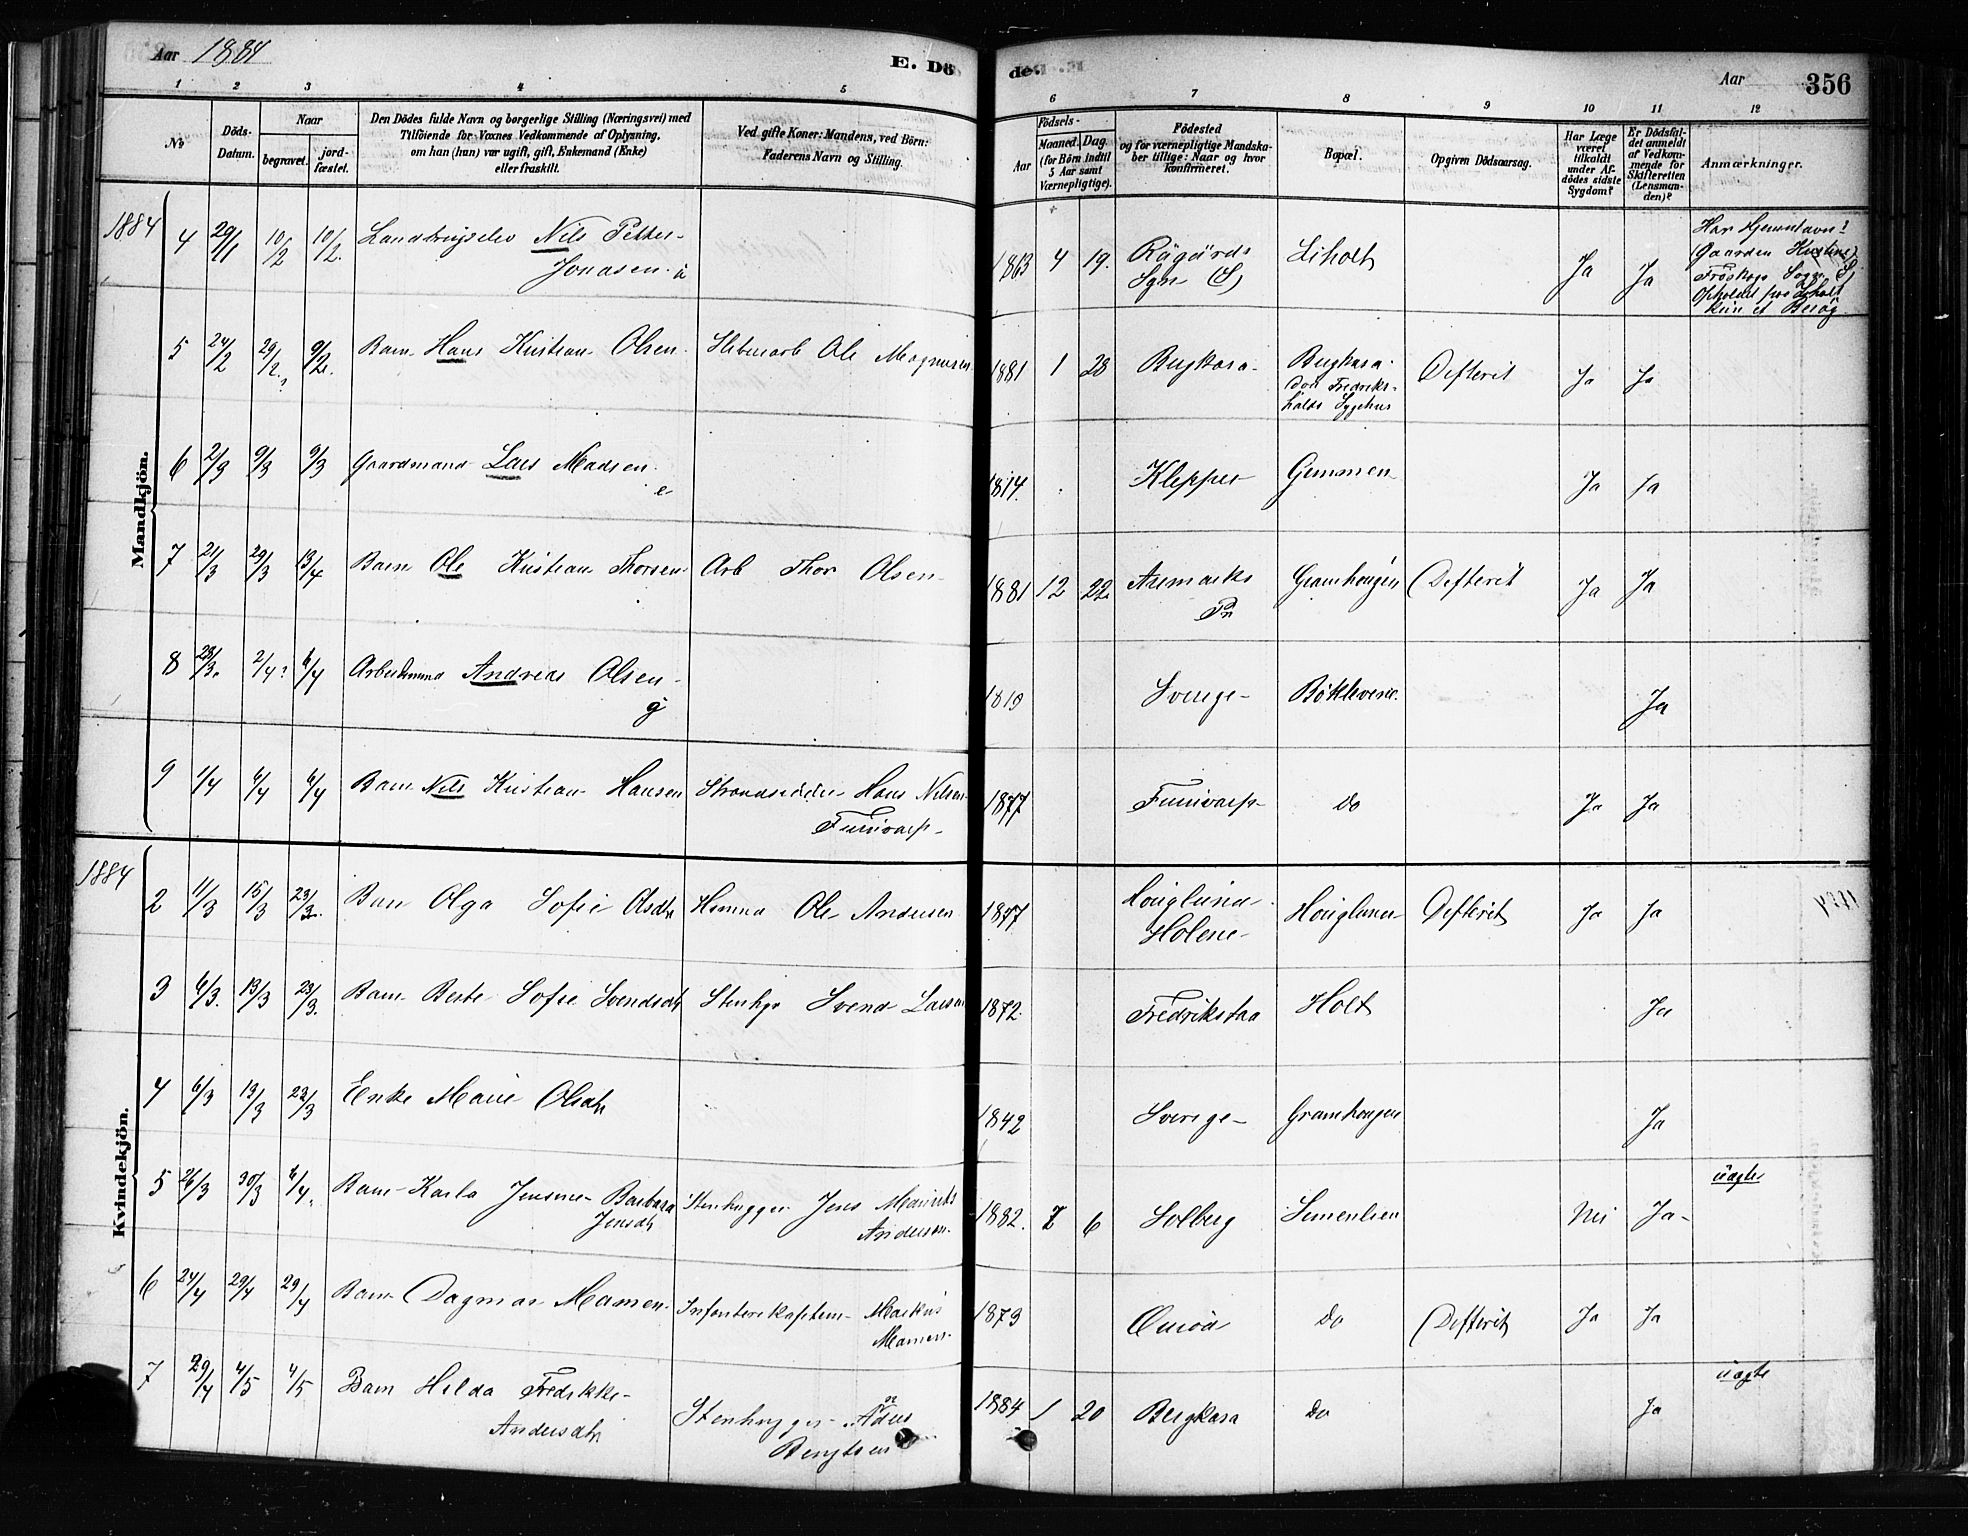 Aar 1884
E. Dö
de.
Aar
356
1 2 3 4 5 6 7 8 9 10 11 12
No
Döds-
Datum.
Naar
begravet.
jord-
fæstet.
Den Dödes fulde Navn og borgerlige Stilling (Næringsvei) med
Tilföiende for Voxnes Vedkommende af Oplysning,
om han (hun) var ugift, gift, Enkemand (Enke)
eller fraskilt.
Ved gifte Koner: Mandens, ved Börn:
Faderens Navn og Stilling.
Födsels-
Aar
Maaned. Dag.
(for Börn indtil
5 Aar samt
Værnepligtige).
Födested
og for værnepligtige Mandska-
ber tillige: Naar og hvor
Konfirmeret.
Bopæl.
Opgiven Dödsaarsag.
Har Læge
været
tilkaldt
under Af-
dödes sidste
Sygdom?
Er Dödsfal-
det anmeldt
af Vedkom-
mende for
Skifteretten
(Lensman-
den)?
Anmærkninger.
Mandkjön.
1884 4 29/1 10/2 10/2. Nils Petter
Jonasen. u
1863 4 19. Liholt Ja Ja
5 24/2 29/2? 9/2. Barn Hans Kristian Olsen. Ole Magnusen
1881 1 28 Bergkasa Bergkasa Defterit Ja Ja
död Fredriks-
halds Sygehus
6 2/3 9/3 9/3 Gaardmand Lars Madsen.
e
1814. Klepper Gemmen Ja Ja
7 21/3 29/3 13/4 Barn Ole Kristian Thorsen Arb Thor Olsen
1881 12 22. Aremarks
Pr
Gramhougen Defterit Ja Ja
8 28/3. 2/4? 6/4 Arbeidsmand Andreas Olsen
g
1819 Sverige Ja
9 1/4 6/4 6/4 Barn Nils Kristian Hansen Strandsidder Hans Nilsen
1877 Do Ja Ja
Kvindekjön.
1884
2 11/3 15/3 23/3. Barn Olga Sofie Olsdtr Ole Andersen
1877 Houglund
Holene
Houglund Defterit Ja Ja
3 6/3. 13/3 23/3. Barn Berte Sofie Svendsdtr Stenhgr Svend Larsen
1872. Fredrikstad Holt Ja
4 6/3 13/3 23/3 Enke Marie Olsdtr
1842 Sverige Gramhougen Ja
5 26/3 30/3 6/4. Barn Karla Jensine Barbara
Jensdtr
Stenhugger Jens Maurits
Andersen.
1882. 2 6 Solberg Nei Ja uægte
6 24/4 29/4 29/4 Barn Dagmar Mamen. Infanterikaptein Markus
Mamen.
1873 Do Defterit Ja Ja
7 29/4 4/5 4/5 Barn Hilda Fredrikke
Andersdtr
Stenhugger
Bengtsen
1884 1 20 Bergkasa Do Ja uægte